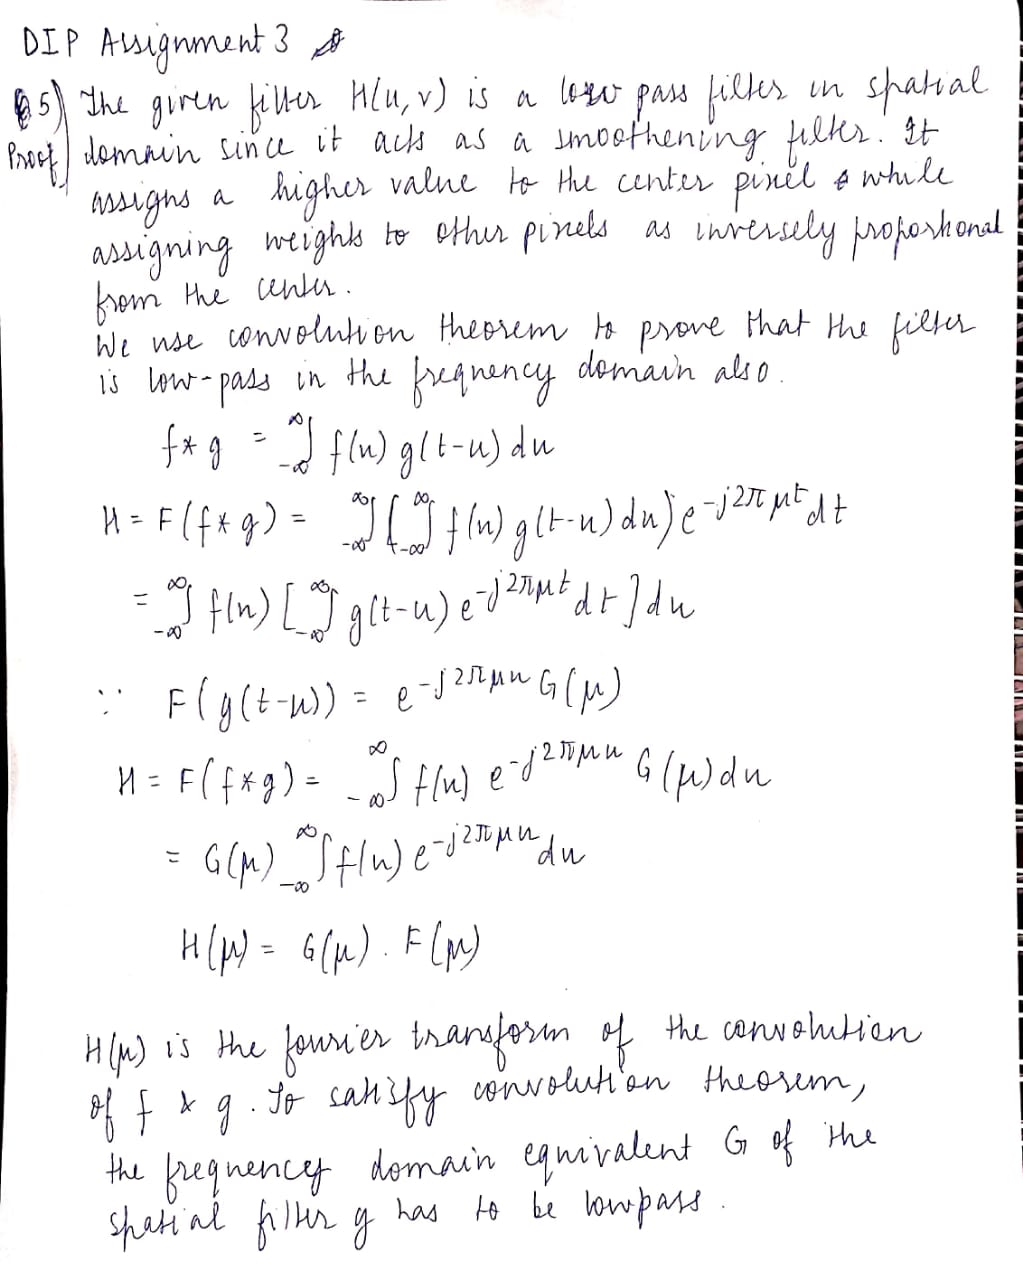 DIP Assignment 3
5) The given filter H(u, v) is a low pass filter in spatial
Proof domain since it acts as a smoothening filter. It
assigns a higher value to the center pixel while
assigning weights to other pixels as inversely proportional
from the center.
We use convolution theorem to prove that the filter
is low-pass in the frequency domain also.
f * g = ∫_{-∞}^{∞} f(u) g(t-u) du
H = F(f * g) = ∫_{-∞}^{∞} [∫_{-∞}^{∞} f(u) g(t-u) du] e^{-j2πμt} dt
= ∫_{-∞}^{∞} f(u) [∫_{-∞}^{∞} g(t-u) e^{-j2πμt} dt] du
∵ F(g(t-u)) = e^{-j2πμu} G(μ)
H = F(f * g) = ∫_{-∞}^{∞} f(u) e^{-j2πμu} G(μ) du
= G(μ) ∫_{-∞}^{∞} f(u) e^{-j2πμu} du
H(μ) = G(μ) . F(μ)
H(μ) is the fourier transform of the convolution
of f & g. To satisfy convolution theorem,
the frequency domain equivalent G of the
spatial filter g has to be lowpass.